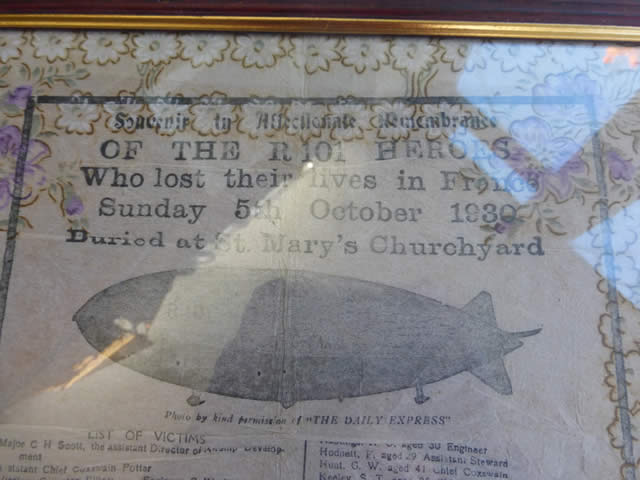 Souvenir in Affectionate Remembrance
OF THE R 101 HEROES
Who lost their lives in France
Sunday 5th October 1930
Buried at St. Mary's Churchyard
Photo by kind permission of "THE DAILY EXPRESS"
LIST OF VICTIMS
Major C H Scott, the assistant Director of Airship Develop-
ment
sistant Chief Coxswain Potter
aged 30 Engineer
Hodnett, F. aged 29 Assistant Steward
Hunt, G. W. aged 41 Chief Coxswain
Keeley, S. T.